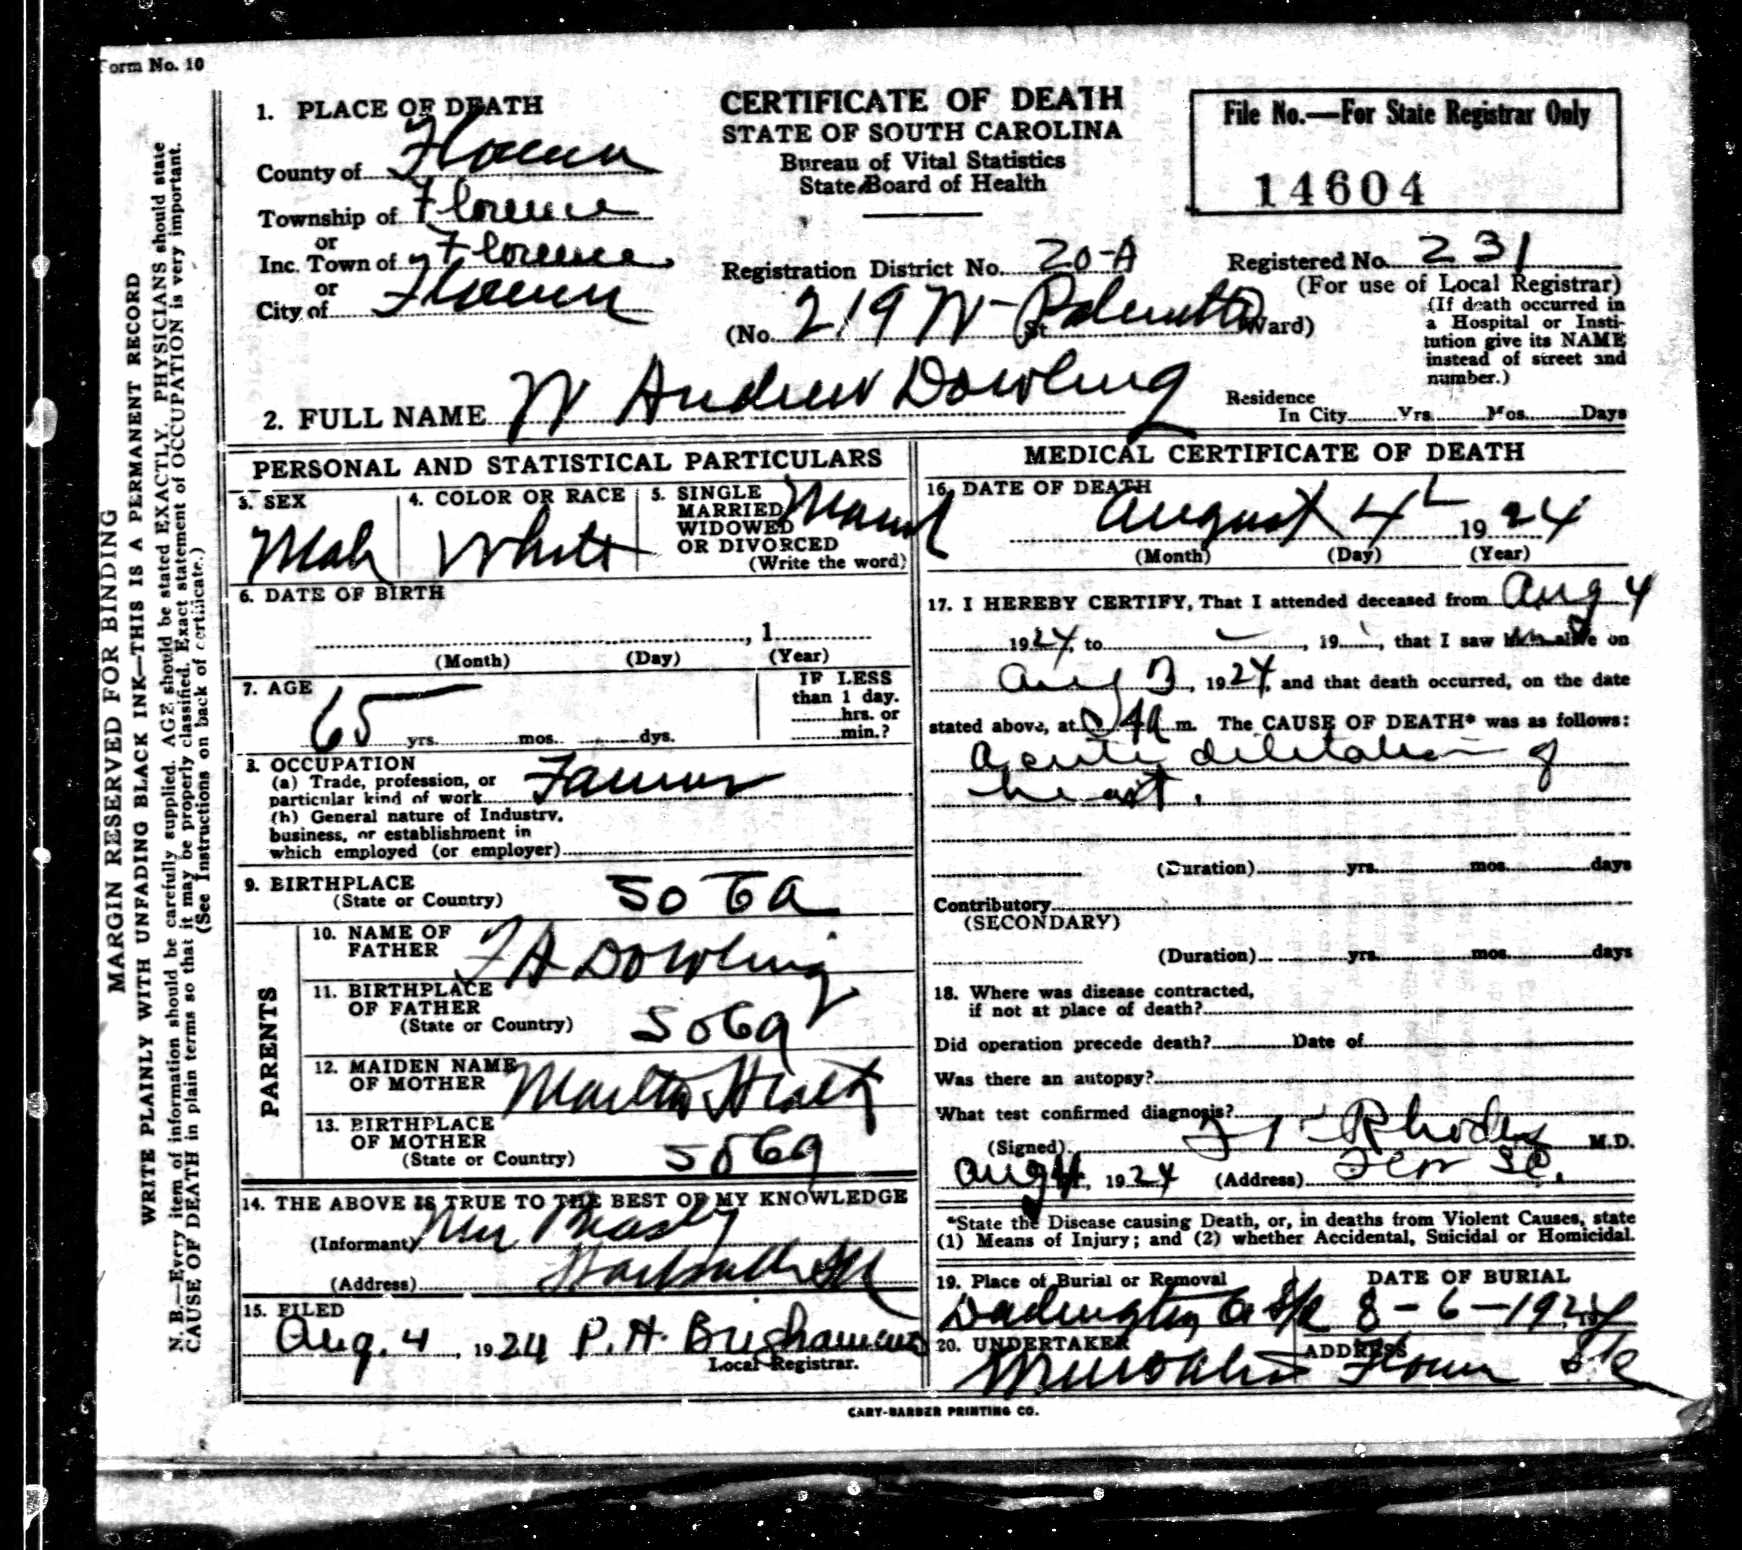 Form No. 10
1. PLACE OF DEATH
County of Florence
Township of Florence
or
Inc. Town of Florence
or
City of Florence
CERTIFICATE OF DEATH
STATE OF SOUTH CAROLINA
Bureau of Vital Statistics
State Board of Health
File No.—For State Registrar Only
14604
Registration District No. 20-A
Registered No. 231
(For use of Local Registrar)
(No. 219 W- Palmetto St. Ward)
(If death occurred in
a Hospital or Insti-
tution give its NAME
instead of street and
number.)
2. FULL NAME W Andrew Dowling
Residence
In City Yrs. Mos. Days
PERSONAL AND STATISTICAL PARTICULARS
3. SEX
Male
4. COLOR OR RACE
White
5. SINGLE
MARRIED
WIDOWED
OR DIVORCED
(Write the word)
Married
6. DATE OF BIRTH
, 1
(Month) (Day) (Year)
7. AGE
65 yrs. mos. dys.
IF LESS
than 1 day.
hrs. or
min.?
8. OCCUPATION
(a) Trade, profession, or
particular kind of work Farmer
(b) General nature of Industry,
business, or establishment in
which employed (or employer)
9. BIRTHPLACE
(State or Country) So Ca
PARENTS
10. NAME OF
FATHER
Dowling
11. BIRTHPLACE
OF FATHER
(State or Country) So Ca
12. MAIDEN NAME
OF MOTHER
Martha
13. BIRTHPLACE
OF MOTHER
(State or Country) So Ca
14. THE ABOVE IS TRUE TO THE BEST OF MY KNOWLEDGE
(Informant)
(Address)
15. FILED
Aug. 4, 1924 P. H.
Local Registrar.
MEDICAL CERTIFICATE OF DEATH
16. DATE OF DEATH
August 4 1924
(Month) (Day) (Year)
17. I HEREBY CERTIFY, That I attended deceased from Aug 4
1924, to , 19 , that I saw him alive on
Aug 3, 1924, and that death occurred, on the date
stated above, at m. The CAUSE OF DEATH* was as follows:
acute dilitation of
heart.
(Duration) yrs. mos. days
Contributory
(SECONDARY)
(Duration) yrs. mos. days
18. Where was disease contracted,
if not at place of death?
Did operation precede death? Date of
Was there an autopsy?
What test confirmed diagnosis?
(Signed) Rhodes M.D.
Aug 4, 1924 (Address) Flor SC.
*State the Disease causing Death, or, in deaths from Violent Causes, state
(1) Means of Injury; and (2) whether Accidental, Suicidal or Homicidal.
19. Place of Burial or Removal
Darlington Co S/C
DATE OF BURIAL
8-6-1924
20. UNDERTAKER
ADDRESS
Florence S/C
CARY-BARBER PRINTING CO.
MARGIN RESERVED FOR BINDING
WRITE PLAINLY WITH UNFADING BLACK INK—THIS IS A PERMANENT RECORD
N. B.—Every item of information should be carefully supplied. AGE should be stated EXACTLY. PHYSICIANS should state
CAUSE OF DEATH in plain terms so that it may be properly classified. Exact statement of OCCUPATION is very important.
(See Instructions on back of certificate.)